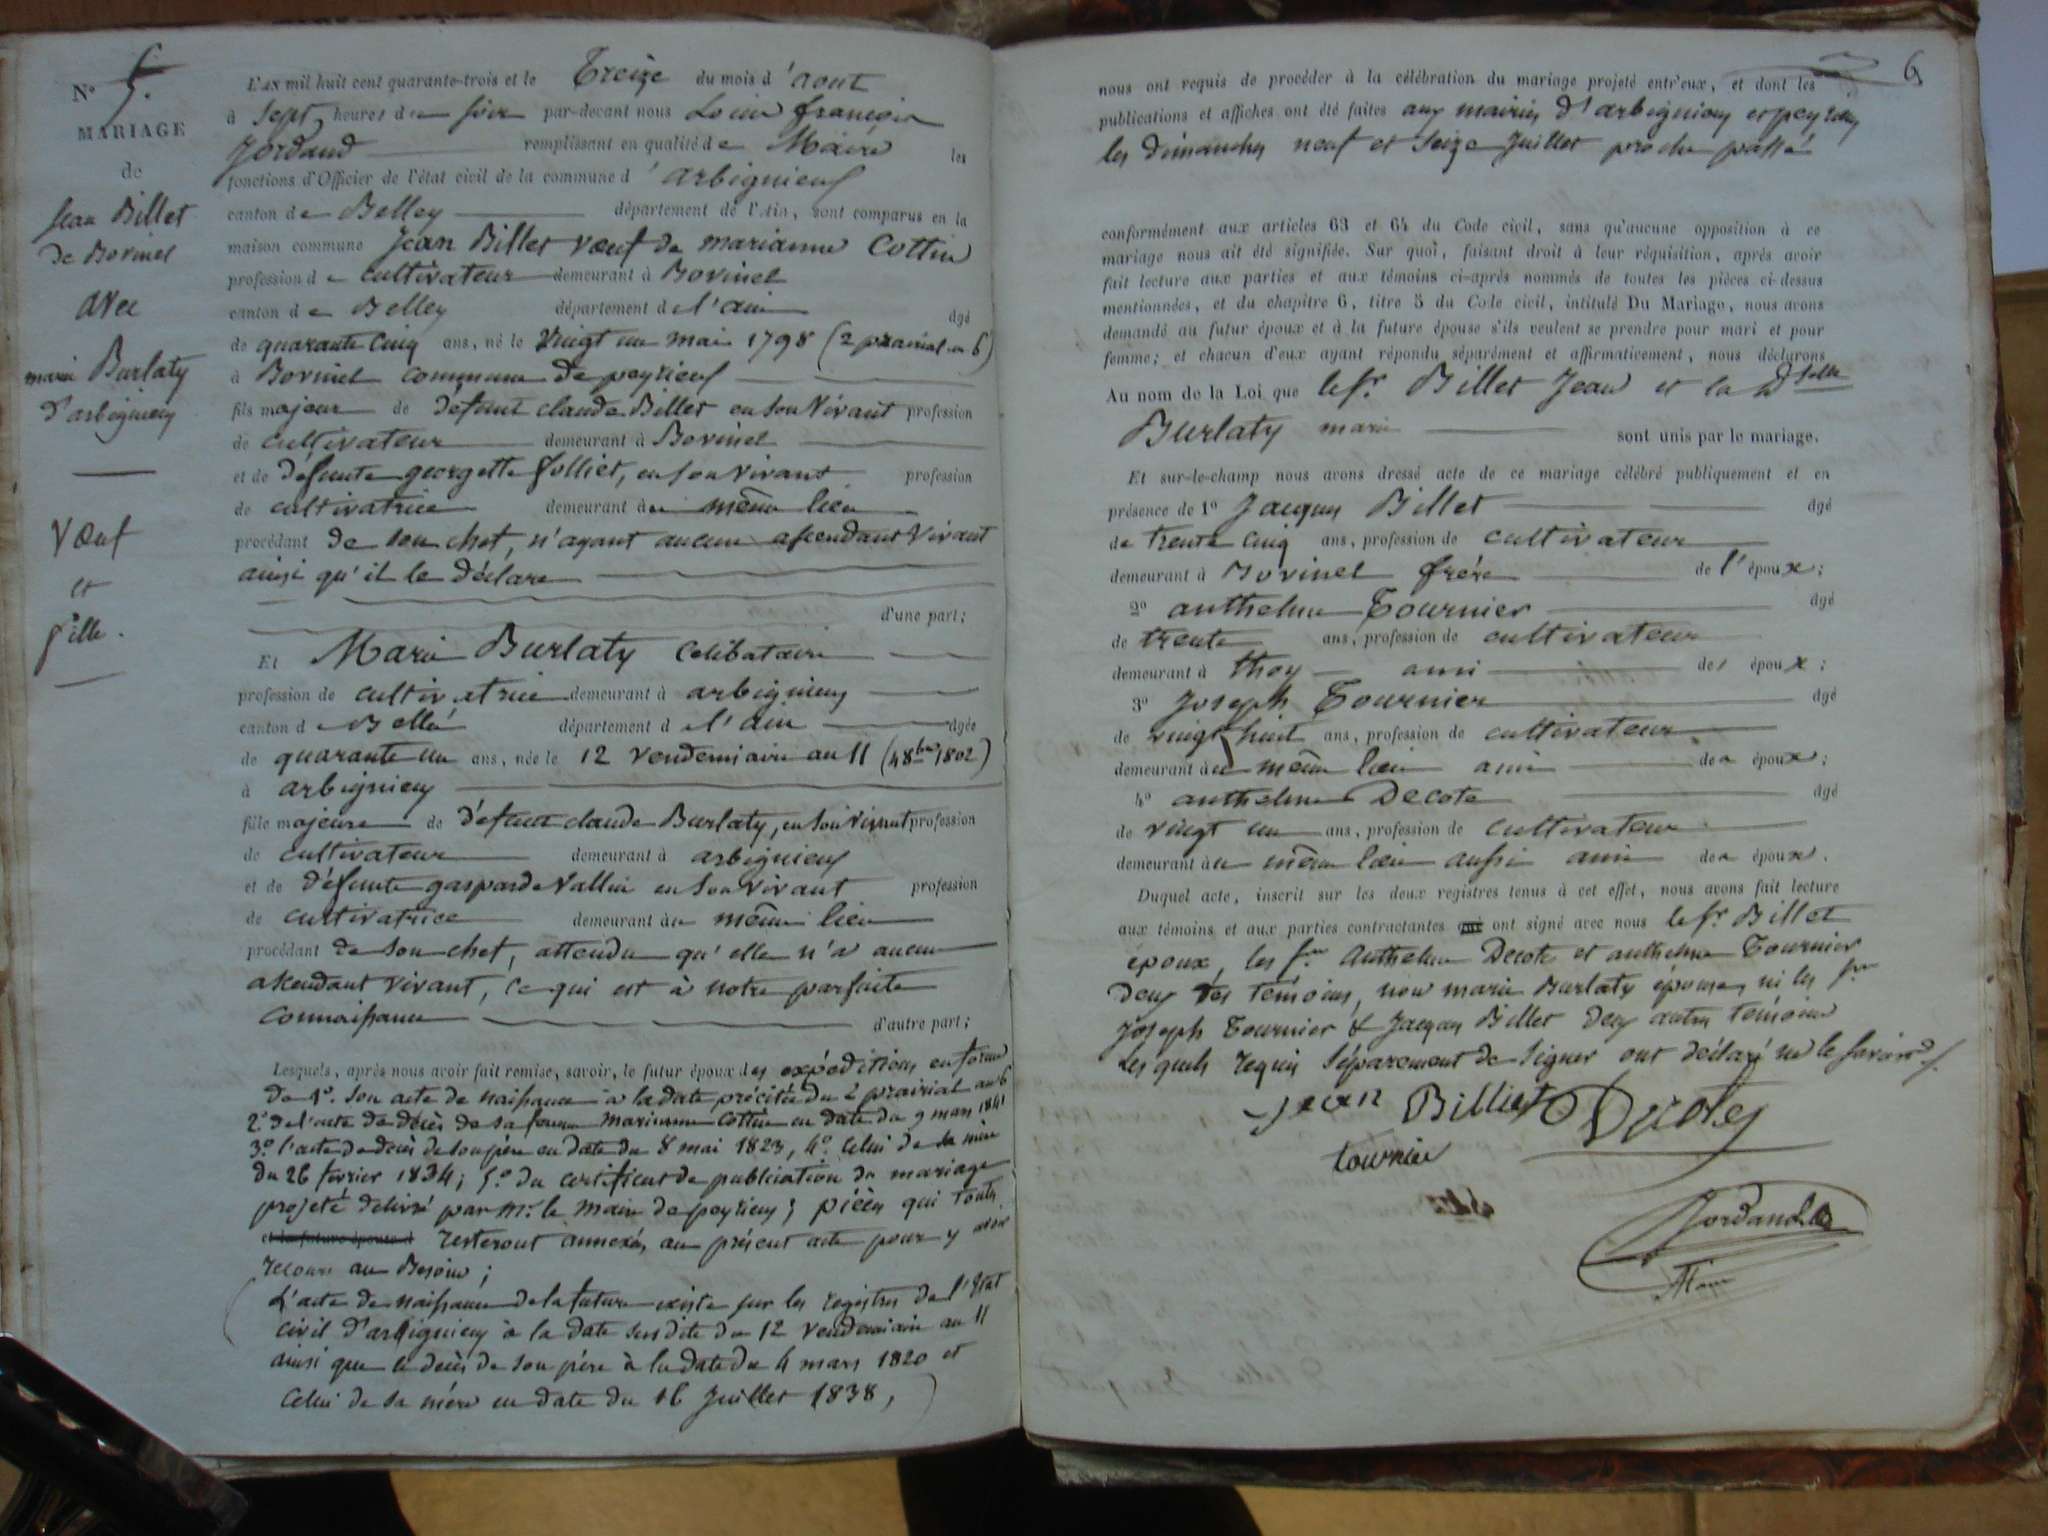 N° 5.
MARIAGE
de
Jean Billet
de Bovinel
avec
marie Burlaty
d'arbignieu
Vœuf
et
fille.
L'AN mil huit cent quarante-trois et le Treize du mois d'aout
à Sept heures du soir par-devant nous Louis françois
Jordand remplissant en qualité de Maire les
fonctions d'Officier de l'état civil de la commune d'arbignieu
canton de Belley département de l'Ain, sont comparus en la
maison commune Jean Billet vœuf de marianne Cottin
profession de cultivateur demeurant à Bovinel
canton de Belley département de l'ain âgé
de quarante cinq ans, né le vingt un mai 1798 (2 prairial an 6)
à Bovinel commune de peyrieu
fils majeur de défunt claude Billet en son vivant profession
de cultivateur demeurant à Bovinel
et de défunte georgette folliet, en son vivant profession
de cultivatrice demeurant au même lieu
procédant de son chef, n'ayant aucun ascendant vivant
ainsi qu'il le déclare
d'une part;
Et Marie Burlaty celibataire
profession de cultivatrice demeurant à arbignieu
canton de Belle département de l'ain âgée
de quarante un ans, née le 12 vendemiaire an 11 (4 8bre 1802)
à arbignieu
fille majeure de défunt claude Burlaty, en son vivant profession
de cultivateur demeurant à arbignieu
et de défunte gasparde Vallin en son vivant profession
de cultivatrice demeurant au même lieu
procédant de son chef, attendu qu'elle n'a aucun
ascendant vivant, ce qui est à notre parfaite
connaissance d'autre part;
Lesquels, après nous avoir fait remise, savoir, le futur époux des expéditions en forme
de 1°. Son acte de naissance à la date précitée du 2 prairial an 6
2° de l'acte de décès de sa femme marianne Cottin en date du 9 mars 1841
3°. l'acte de décès de son père en date du 8 mai 1823, 4°. celui de sa mère
du 26 fevrier 1834; 5.° du certificat de publication du mariage
projeté délivré par Mr. le maire de peyrieu; pièces qui toutes
et la future épouse d resteront annexés au présent acte pour y avoir
recours au Besoin;
L'acte de naissance de la future existe sur les registres de l'Etat
civil d'arbignieu à la date susdite du 12 vendemiaire an 11
ainsi que le décès de son père à la date du 4 mars 1820 et
celui de sa mère en date du 16 Juillet 1838,
6
nous ont requis de procéder à la célébration du mariage projeté entr'eux, et dont les
publications et affiches ont été faites aux mairies d'arbignieu et peyrieu
les dimanches neuf et Seize Juillet proche passé
conformément aux articles 63 et 64 du Code civil, sans qu'aucune opposition à ce
mariage nous ait été signifiée. Sur quoi, faisant droit à leur réquisition, après avoir
fait lecture aux parties et aux témoins ci-après nommés de toutes les pièces ci-dessus
mentionnées, et du chapitre 6, titre 5 du Code civil, intitulé Du Mariage, nous avons
demandé au futur époux et à la future épouse s'ils veulent se prendre pour mari et pour
femme; et chacun d'eux ayant répondu séparément et affirmativement, nous déclarons
Au nom de la Loi que le sr. Billet Jean et la Dselle
Burlaty marie sont unis par le mariage.
Et sur-le-champ nous avons dressé acte de ce mariage célébré publiquement et en
présence de 1° Jacques Billet âgé
de trente cinq ans, profession de cultivateur
demeurant à Bovinel frére de l'époux;
2° anthelme Tournier âgé
de trente ans, profession de cultivateur
demeurant à thoy ami de l'époux;
3° Joseph Tournier âgé
de vingt huit ans, profession de cultivateur
demeurant au même lieu ami des époux;
4° anthelme Decote âgé
de vingt un ans, profession de cultivateur
demeurant au même lieu aussi ami des époux.
Duquel acte, inscrit sur les deux registres tenus à cet effet, nous avons fait lecture
aux témoins et aux parties contractantes qui ont signé avec nous le sr. Billet
époux, les srs Anthelme Decote et anthelme Tournier
deux des témoins, non marie Burlaty épouse, ni les srs
Joseph Tournier & Jacques Billet deux autres témoins
Les quels requis séparement de signer ont déclaré ne le savoir
Jean Billiet Decotes
tournier
Jordand
Maire